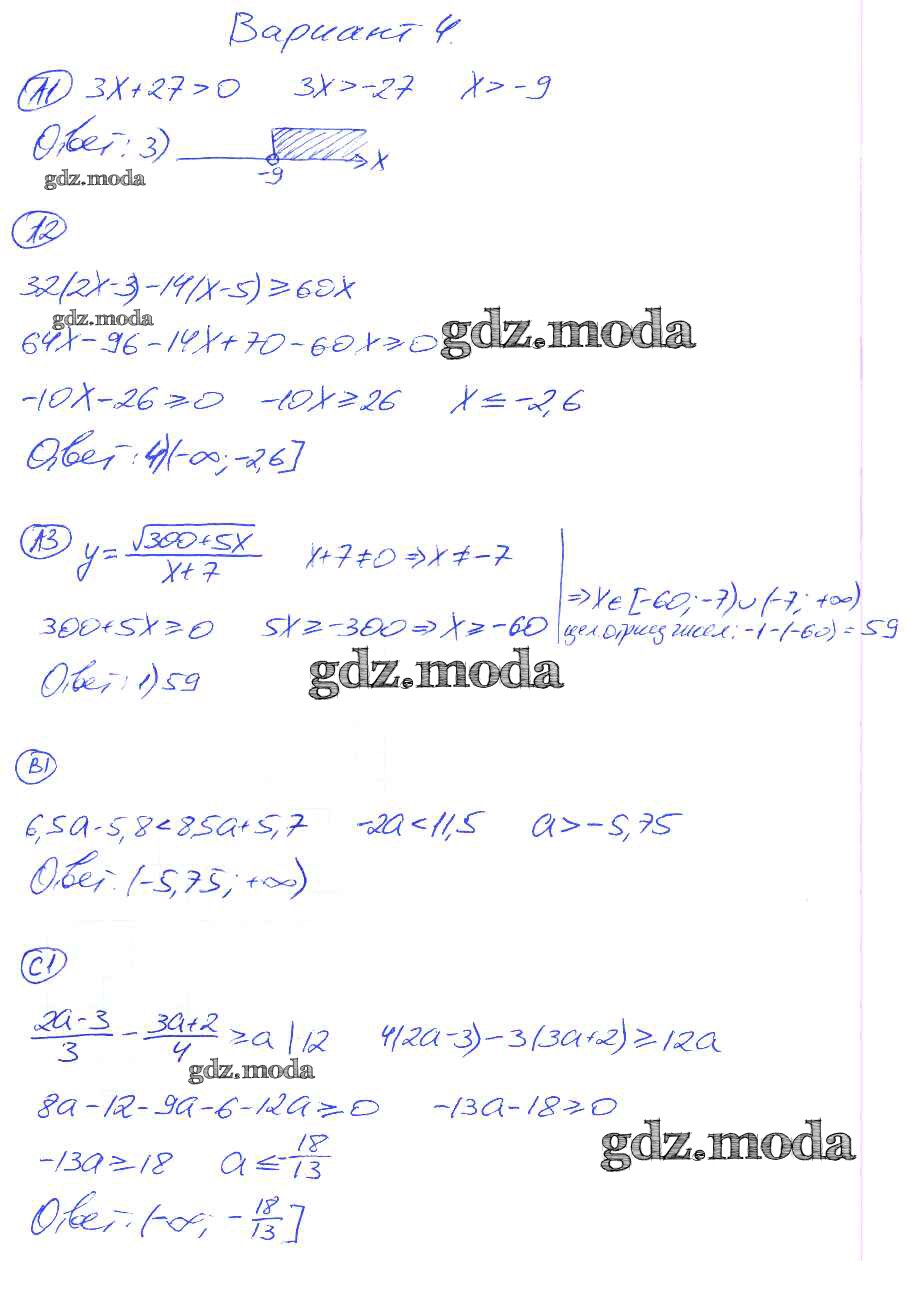 Вариант 4.
А1 3x+27>0 3x>-27 x>-9
Ответ: 3) -9 x
gdz.moda
А2
32(2x-3)-14(x-5)≥60x
gdz.moda
64x-96-14x+70-60x≥0 gdz.moda
-10x-26≥0 -10x≥26 x≤-2,6
Ответ: 4)(-∞;-2,6]
А3 y=√(300+5x)/(x+7) x+7≠0⇒x≠-7
⇒x∈[-60;-7)∪(-7;+∞)
300+5x≥0 5x≥-300⇒x≥-60 цел.отриц чисел: -1-(-60)=59
Ответ: 1)59 gdz.moda
В1
6,5a-5,8<8,5a+5,7 -2a<11,5 a>-5,75
Ответ: (-5,75;+∞)
С1
(2a-3)/3-(3a+2)/4≥a|12 4(2a-3)-3(3a+2)≥12a
gdz.moda
8a-12-9a-6-12a≥0 -13a-18≥0
gdz.moda
-13a≥18 a≤-18/13
Ответ: (-∞; -18/13]